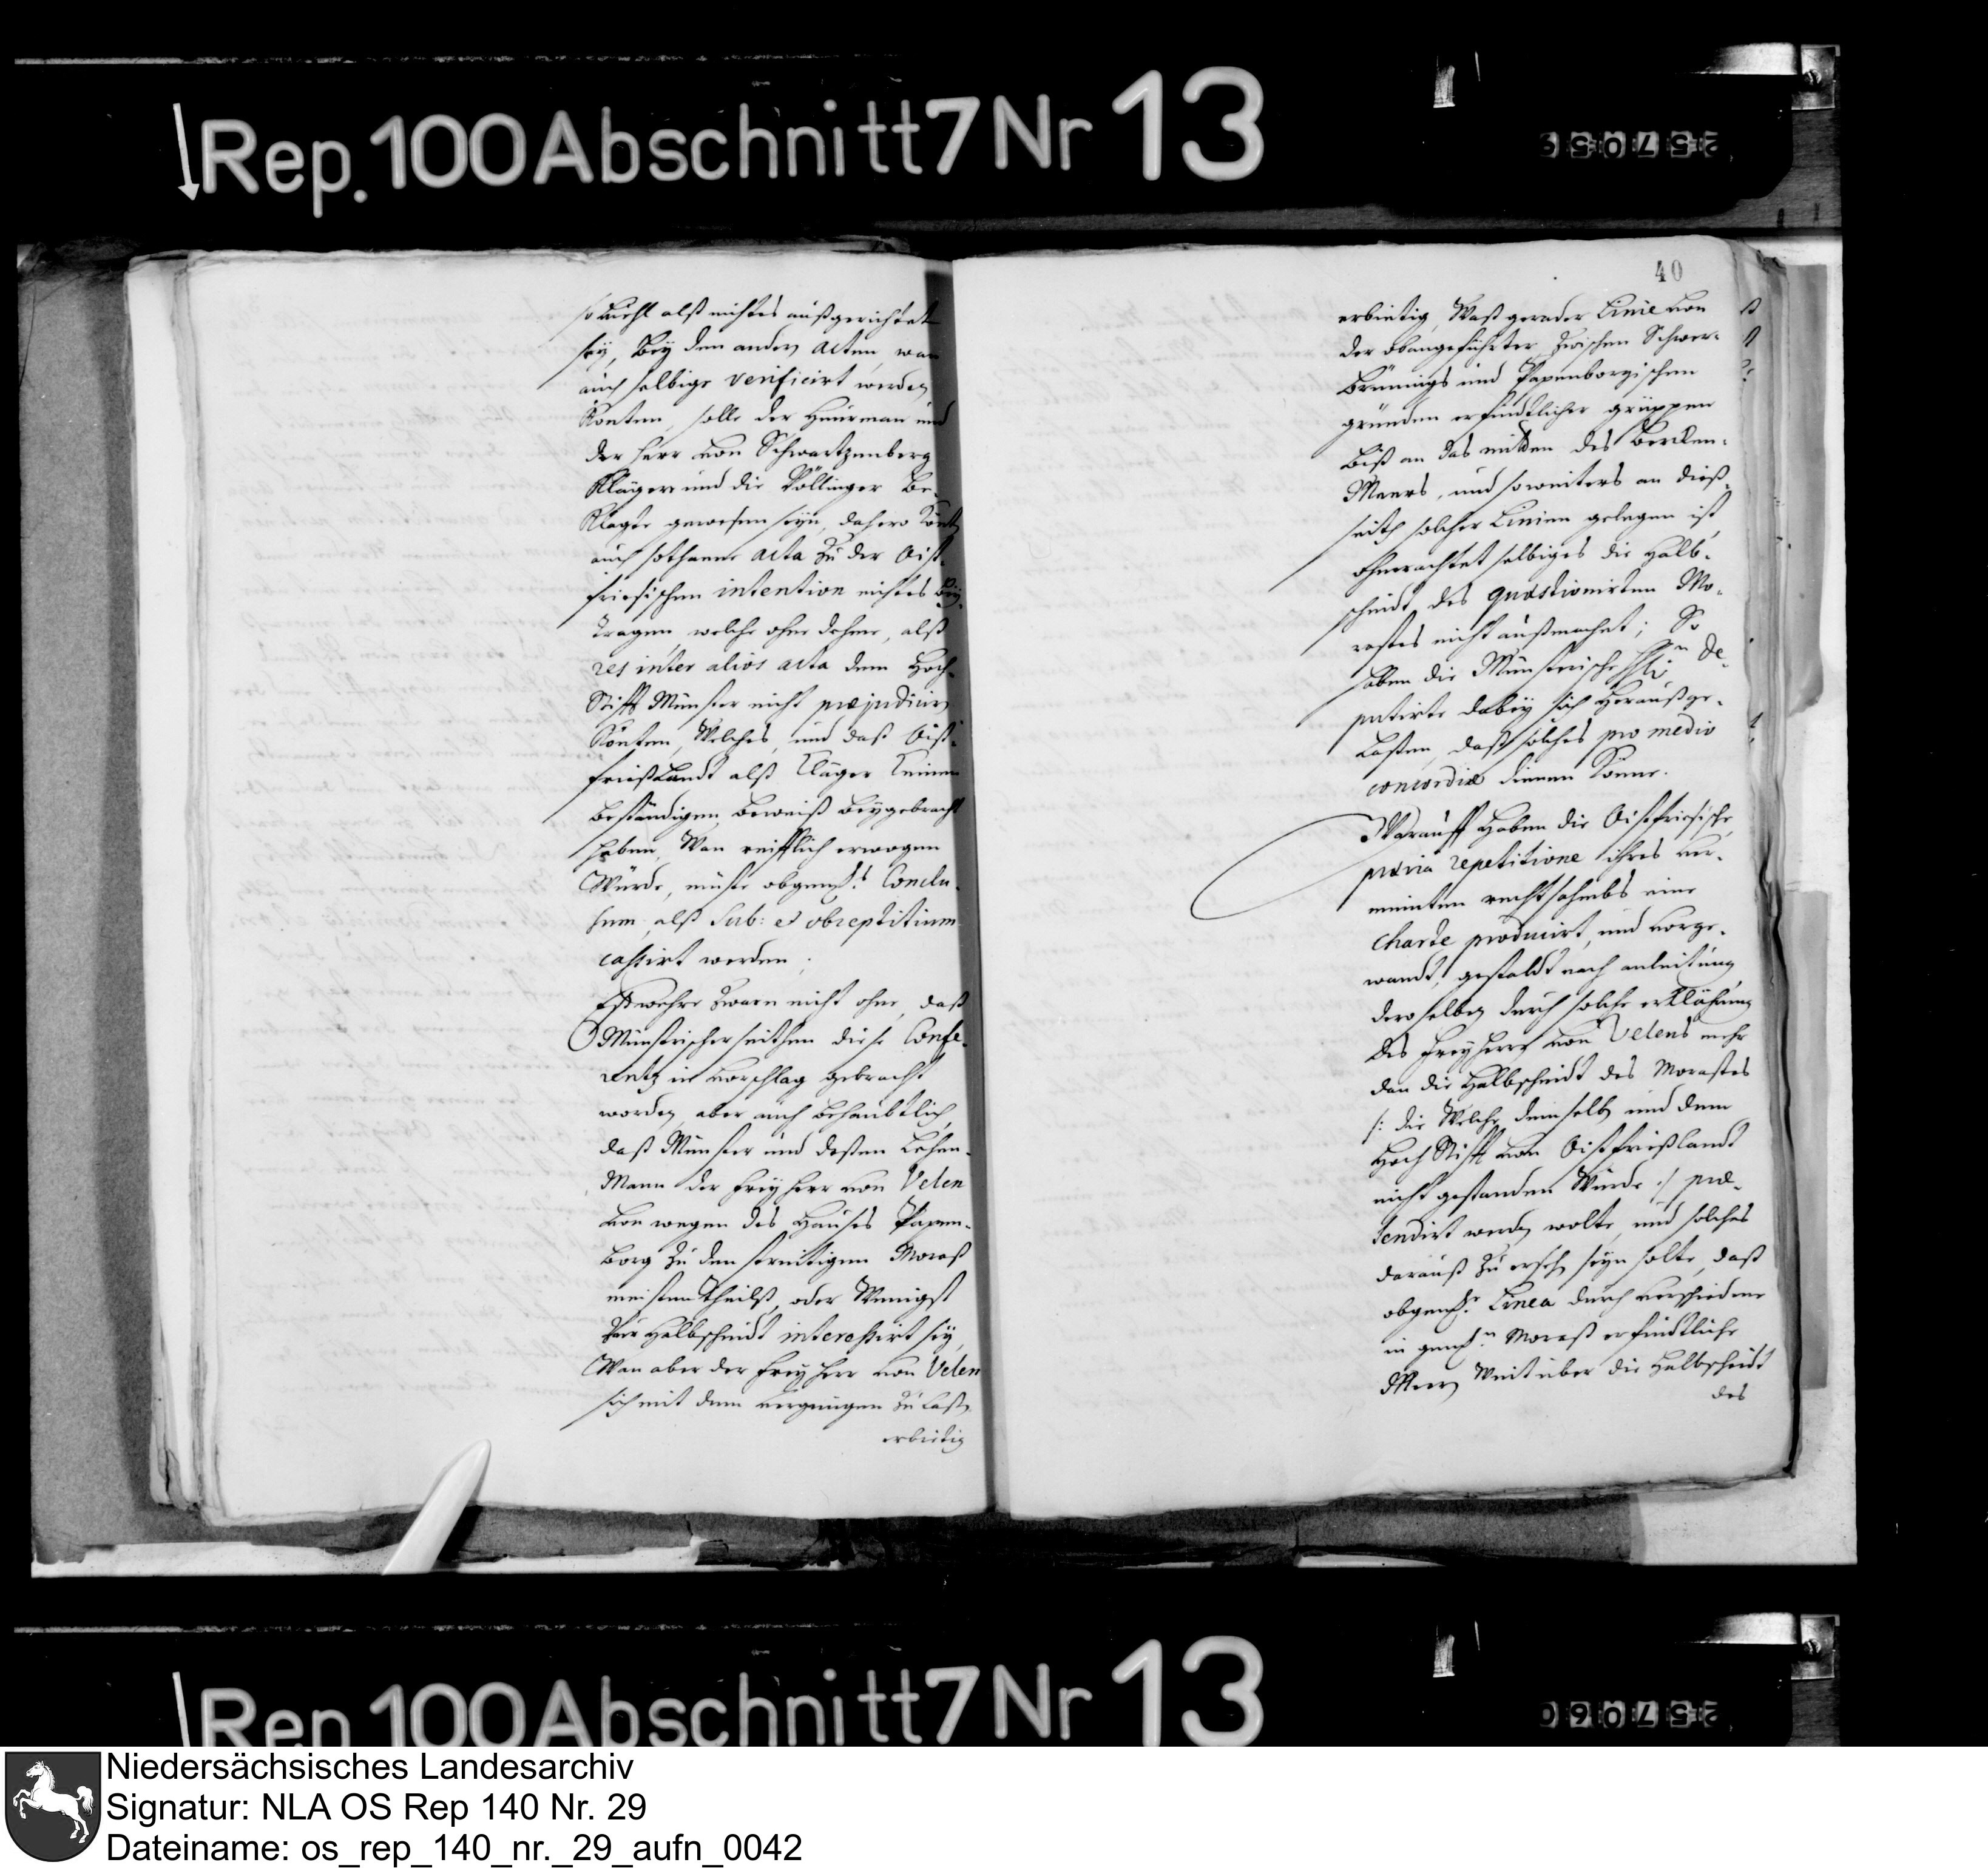 Rep. 100 Abschnitt 7 Nr 13
257059
so viehl alß nichtes außgerichtet
sey, Bey den andern Acten, wan
auch selbige verificirt werden
Konten, solle der Heuerman und
der Herr von Schwartzenberg
Kläger und die Völlinger Be-
Klagte gewesen seyn, dahero Könten
auch sothane acta zu der Oist-
friesischen intention nichtes bey-
tragen, welche ohne dehme, alß
res inter alios acta dem Hoch-
Stifft Münster nicht præjudiciren
Könten, Welches, und daß Oist-
frießlandt alß Kläger Keinen
beständigen Beweiß beygebracht
haben, Wan reifflich erwogen
Würde, müste obgem.s Conclu-
sum, alß sub: et obreptitium
cassirt werden.
Eß wehre zwarn nicht ohne, daß
Münstrischer seithen diese Confe-
rentz in vorschlag gebracht
worden, aber auch behaubtlich,
daß Münster und deßen Lehen-
Mann der Freyherr von Velen
von wegen des Haußes Papen-
borg zu den streitigen Moraß
meistentheilß, oder Wenigst
zur Halbscheidt interessirt sey,
Wan aber der Freyherr von Velen
sich mit dem vergnügen zu laßen
erbietig
40
erbietig, Waß gerader Linie von
der obangeführter zwischen Schwer-
brünnings und Papenborgischen
gründen erfindtlicher grüppen
biß an das mitten des Berlen-
Meers, und so weiters an dieß-
seith solcher Linien gelegen ist
ohnerachtet selbiges die Halb-
scheidt des quæstionirten Mo-
rastes nicht außmachet; So
haben die Münstrische HH.n De-
putirte dabey sich herauß ge-
laßen, daß solches pro medio
concordiæ dienen Könne.
Warauff haben die Oistfriesische
præviâ repetitione ihres ver-
meinten rechtsahmbs eine
Charte producirt, und vorge-
wandt, gestaldt nach anleitung
deroselben durch solche erKlährung
des Freyherrn von Velens mehr
dan die Halbscheidt des Morastes
/: die Welche demselben und dem
Hoch Stifft von Oistfrießlandt
nicht gestanden Würde :/ præ-
tendirt werden wolte, und solches
darauß zu ersehen seyn solte, daß
obgem.e Linea durch verschiedene
in gem.n Moraß erfindtliche
Meer Weit über die Halbscheidt
des
Rep 100 Abschnitt 7 Nr 13
257060
Niedersächsisches Landesarchiv
Signatur: NLA OS Rep 140 Nr. 29
Dateiname: os_rep_140_nr._29_aufn_0042